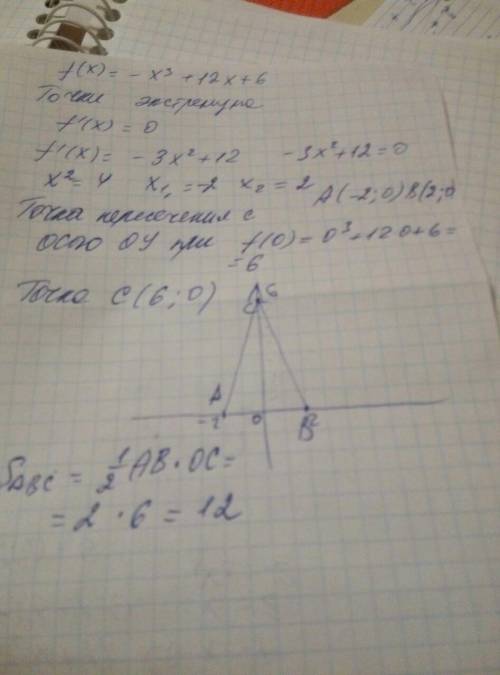 f(x) = - x³ + 12x + 6
Точки экстремума
f'(x) = 0
f'(x) = - 3x² + 12 - 3x² + 12 = 0
x² = 4 x₁ = -2 x₂ = 2 A(-2; 0) B(2; 0
Точка пересечения с
осью OY при f(0) = 0³ + 12·0 + 6 =
= 6
Точка C(6; 0)
C 6
A
-2 0 2
B
S ABC = 1/2 AB · OC =
= 2 · 6 = 12